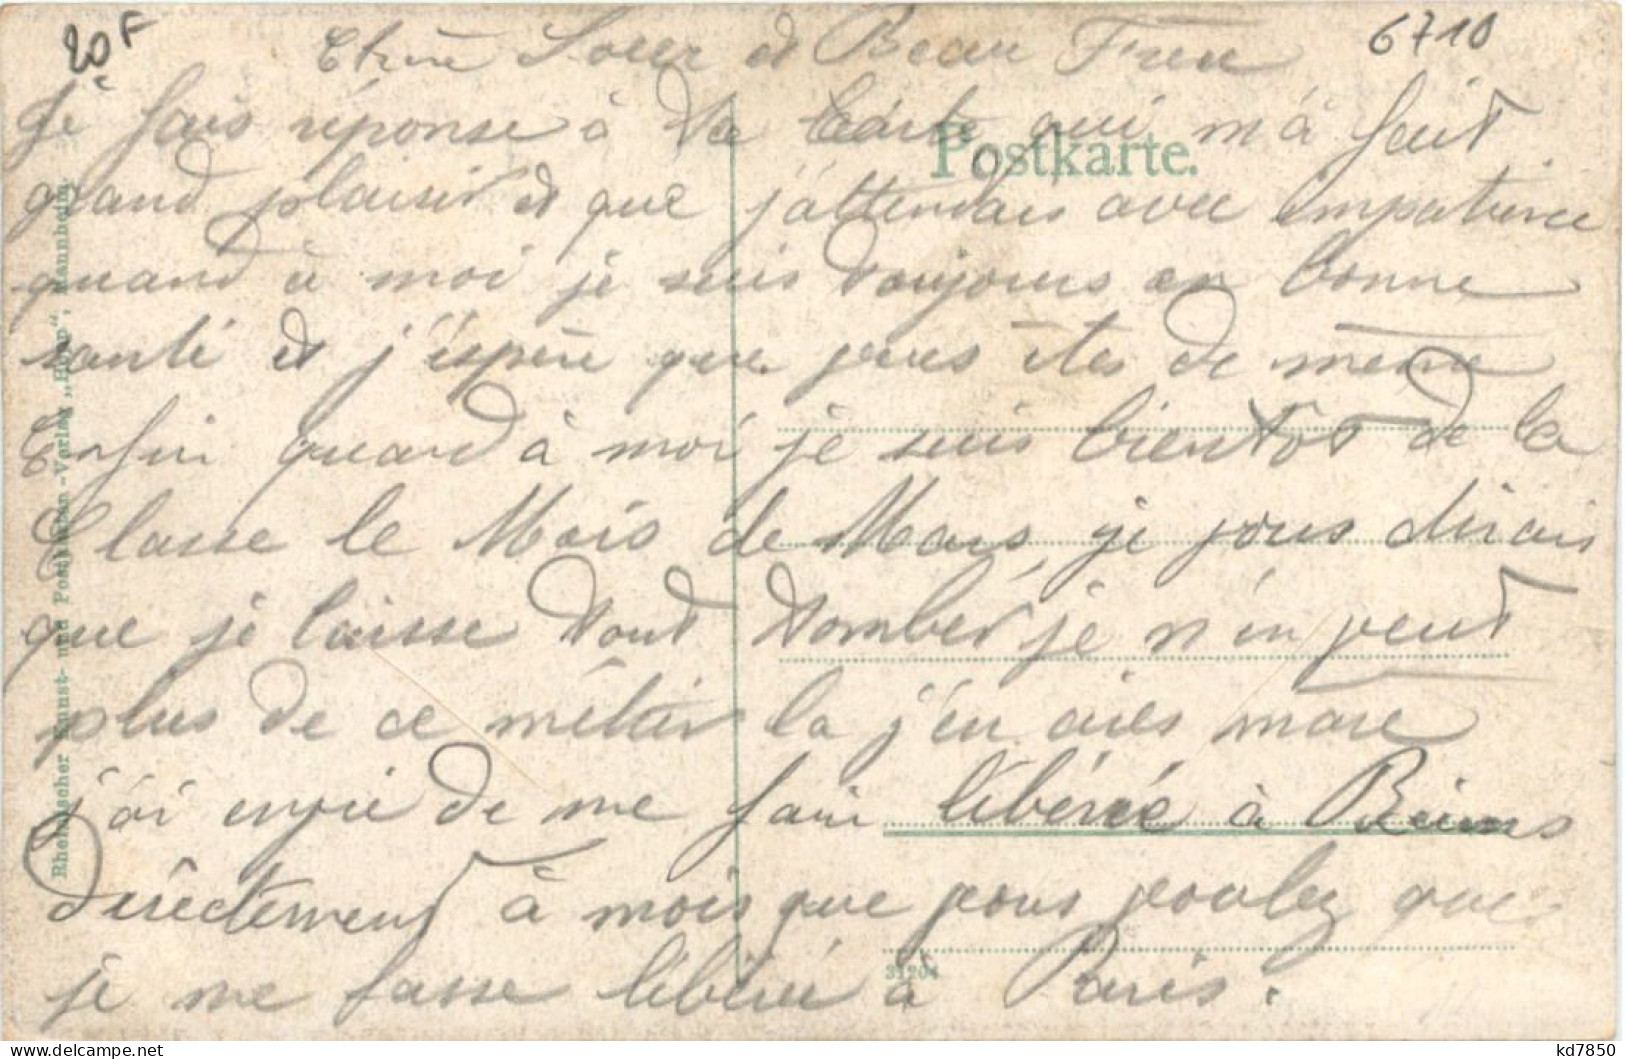 20F
6710
Chère Soeur et Beau Frere
Je fais réponse à ta Carte qui m'à fait
grand plaisir et que j'attendais avec impatience
quand à moi je suis toujours en bonne
santé et j'éspère que vous êtes de même
Enfin quand à moi je suis bientôt de la
Classe le Mois de Mars, je vous dirais
que je laisse tout tomber je n'en peut
plus de ce métier la j'en aies mare
j'ai envie de me fair libérée à Reims
directement à mois que vous voulez que
je me fasse libéreé à Paris.
Postkarte.
Rheinischer Kunst- und Postkarten-Verlag „Hopp“, Mannheim.
31204
kd7850